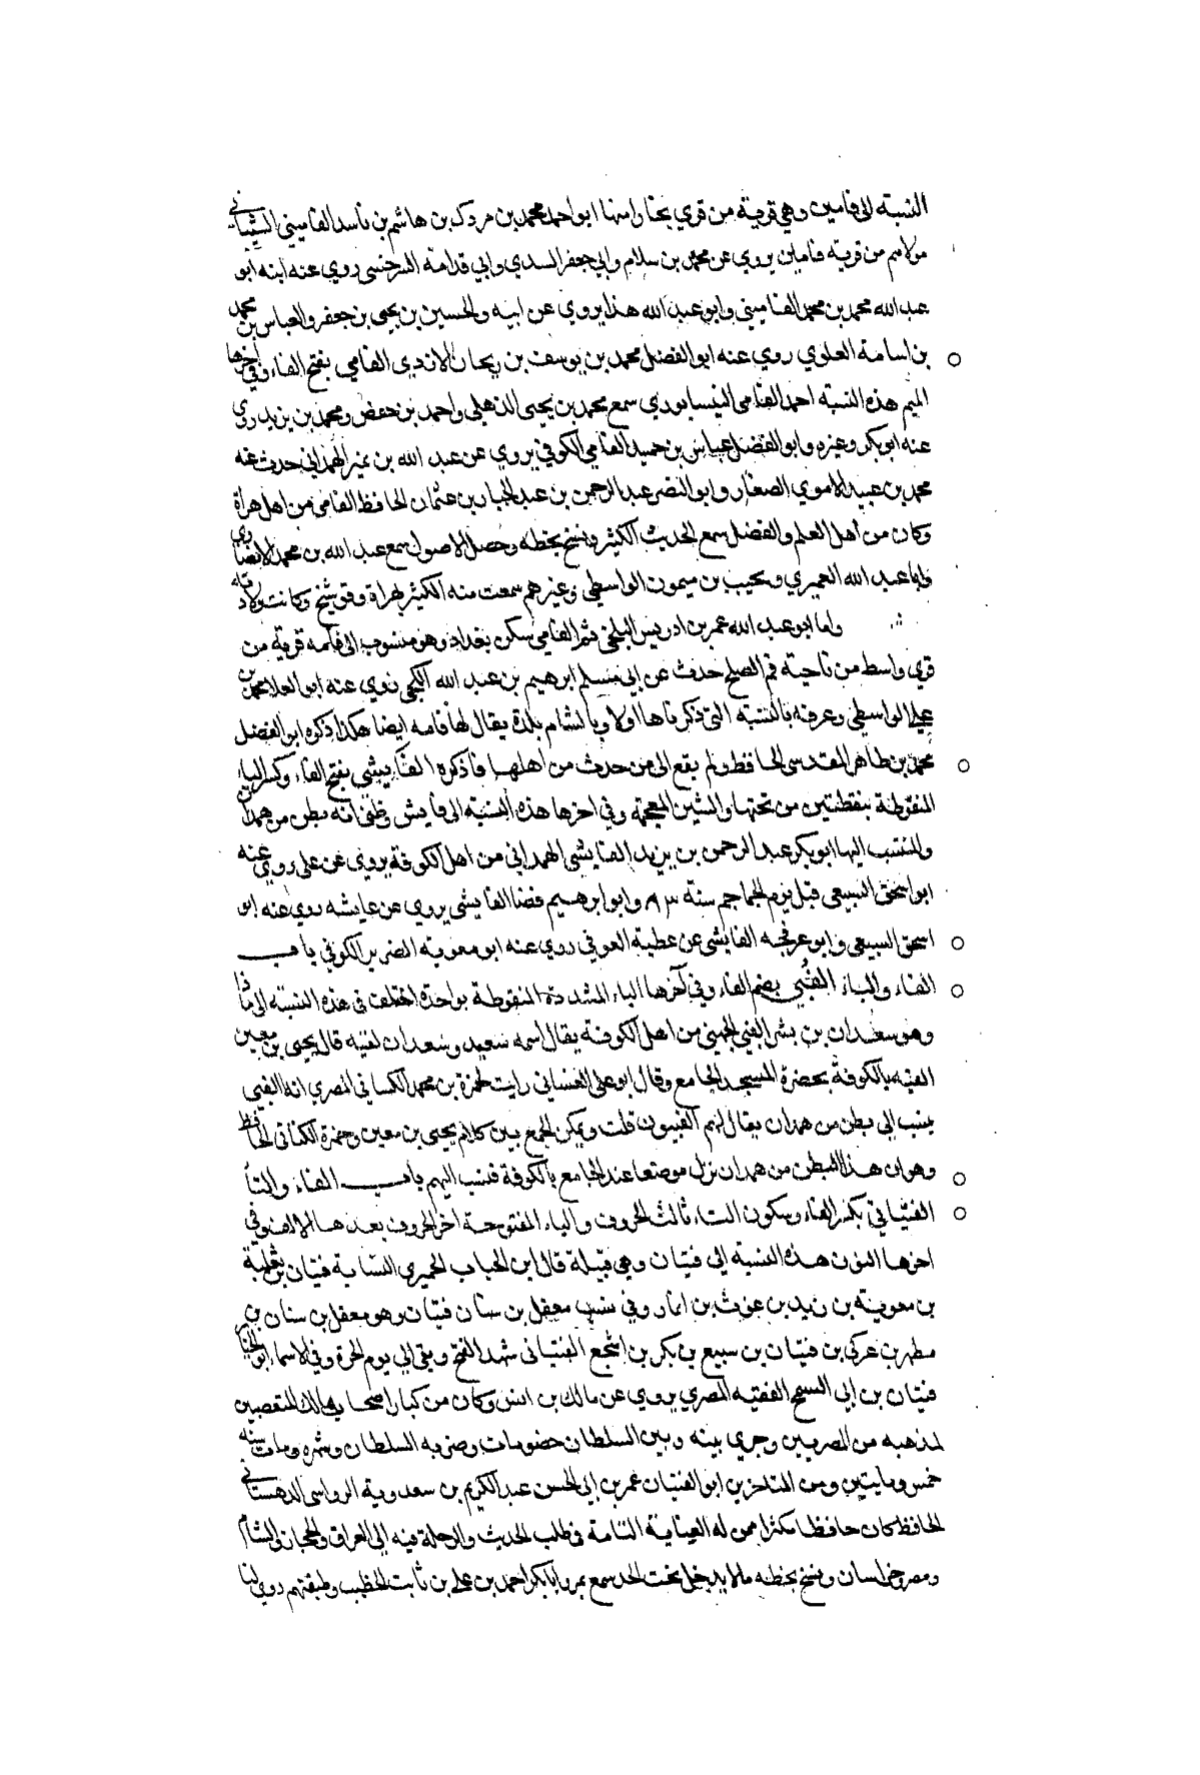 النسبة الى فامين وهي قرية من قري بخارا منها ابو احمد محمد بن مردك بن هاشم بن ناسد الفاميني الشيباني
مولاهم من قرية فامين يروي عن محمد بن سلام وابي جعفر السدي وابي قدامة السرخسي روي عنه ابنه ابو
عبد الله محمد بن محمد الفاميني وابو عبد الله هذا يروي عن ابيه والحسين بن يحيى بن جعفر والعباس بن محمد
بن اسامة العلوي روي عنه ابو الفضل محمد بن يوسف بن ريحان الازدي الفامي بفتح الفاء وفي اخرها
الميم هذه النسبة احمد الفامي النيسابوري سمع محمد بن يحيى الذهلي واحمد بن حفص ومحمد بن يزيد روي
عنه ابو بكر وغيره وابو الفضل عباس بن حميد الفامي الكوفي يروي عن عبد الله بن نمير الهمداني حدث عنه
محمد بن عبيد الاموي الصفار وابو النضر عبد الرحمن بن عبد الجبار بن عثمان الحافظ الفامي من اهل هراة
وكان من اهل العلم والفضل سمع الحديث الكثير ونسخ بخطه وحصل الاصول سمع عبد الله بن محمد الانصاري
وابا عبد الله العميري ونجيب بن ميمون الواسطي وغيرهم سمعت منه الكثير بهراة وفوشنج وكانت ولادته
واما ابو عبد الله عمر بن ادريس البلخي ثم الفامي سكن بغداد وهو منسوب الى فامه قرية من
قري واسط من ناحية فم الصلح حدث عن ابي مسلم ابرهيم بن عبد الله الكجي روي عنه ابو العلا محمد بن
علي الواسطي وعرفه بالنسبة التي ذكرناها اولا وبالشام بلدة يقال لها فامه ايضا هكذا ذكره ابو الفضل
محمد بن طاهر المقدسي الحافظ ولم يقع الي من حدث من اهلها فاذكره الفايشي بفتح الفاء وكسر الياء
المنقوطة بنقطتين من تحتها والشين المعجمة وفي اخرها هذه النسبة الى فايش وظني انه بطن من همدان
والمنتسب اليها ابو بكر عبد الرحمن بن يزيد الفايشي الهمداني من اهل الكوفة يروي عن علي روي عنه
ابو اسحق السبيعي قتل يوم الجماجم سنة ٨٣ وابو ابرهيم فضا الفايشي يروي عن عايشه روي عنه ابو
اسحق السبيعي وابو عرفجه الفايشي عن عطية العوفي روي عنه ابو معوية الضرير الكوفي باب
الفاء والباء الفبي بضم الفاء وفي آخرها الباء المشددة المنقوطة بواحدة اختلف في هذه النسبة الى ماذا
وهو سعدان بن بشر الفبي الجهني من اهل الكوفة يقال اسمه سعيد وسعدان لقبه قال يحيى بن معين
الفبه بالكوفة بحضرة المسجد الجامع وقال ابو علي الغساني رايت لحمزة بن محمد الكساني المصري انه الفبي
ينسب الي بطن من همدان يقال لهم الفبيون قلت ويمكن الجمع بين كلام يحيى بن معين وحمزة الكناني الحافظ
وهو ان هذا البطن من همدان نزل موضعا عند الجامع بالكوفة فنسب اليهم باب الفاء والتا
الفتياني بكسر الفاء وسكون التاء ثالث الحروف والياء المفتوحة اخر الحروف بعدها الالف وفي
اخرها النون هذه النسبة إلي فتيان وهي قبيلة قال ابن الحباب الحميري النسابة فتيان بن ثعلبة
بن معوية بن زيد بن غوث بن انمار وفي نسب معقل بن سنان فتيان وهو معقل بن سنان بن
مطهر بن عركي بن فتيان بن سبيع بن بكر بن اشجع الفتياني شهد الفتح وبقي الي يوم الحرة وفي الاسماء ابو الخيار
فتيان بن ابي السمح الفقيه المصري يروي عن مالك بن انس وكان من كبار اصحاب مالك المتعصبين
لمذهبه من المصريين وجري بينه وبين السلطان خصومات وضربه السلطان وشهره ومات سنة
خمس ومايتين ومن المتاخرين ابو الفتيان عمر بن ابي الحسن عبد الكريم بن سعدوية الرواسي الدهستاني
الحافظ كان حافظا مكثرا ممن له العناية التامة في طلب الحديث والرحلة فيه الي العراق والحجاز والشام
ومصر وخراسان ونسخ بخطه ما لا يدخل تحت الحد سمع بمرو ابا بكر احمد بن علي بن ثابت الخطيب وطبقتهم روي لنا